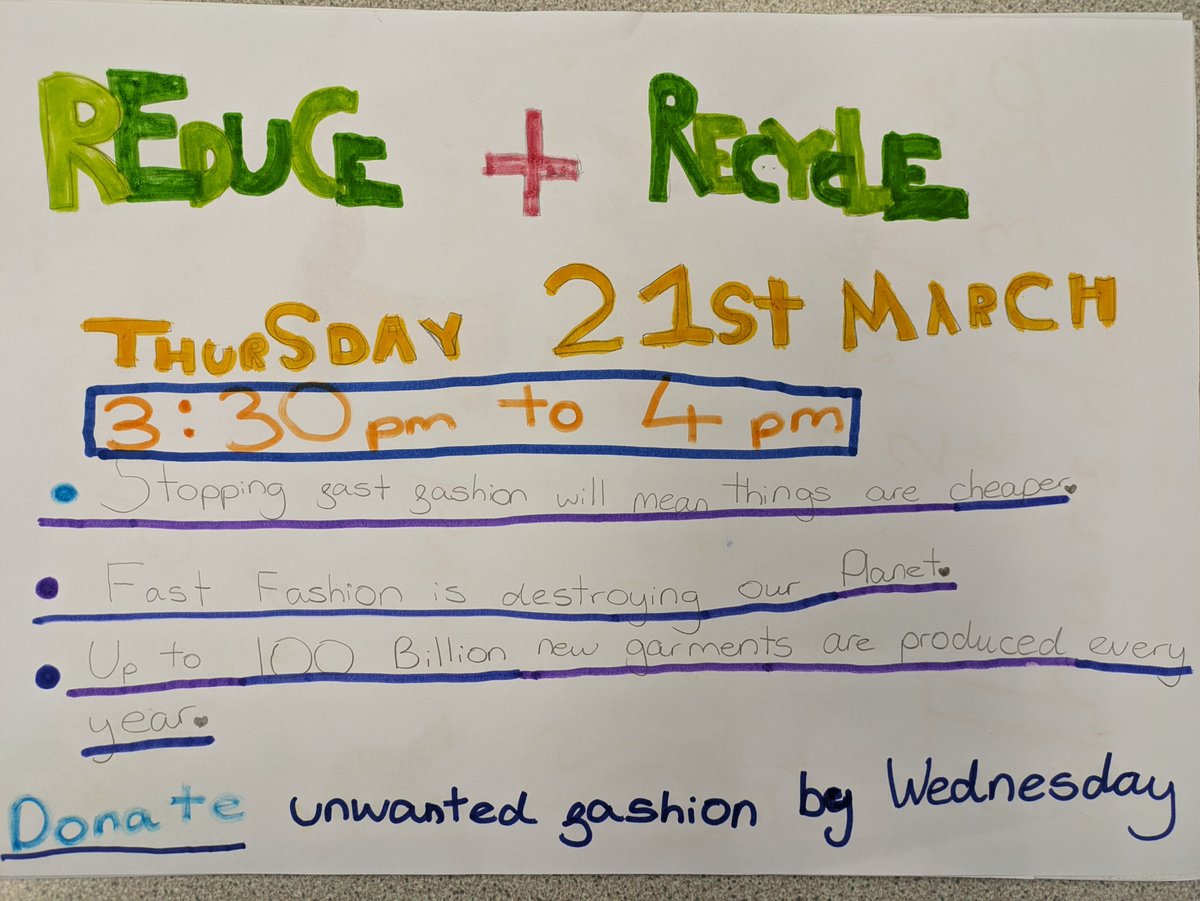 REDUCE + RECYCLE
THURSDAY 21ST MARCH
3:30pm to 4 pm
• Stopping fast fashion will mean things are cheaper.
• Fast Fashion is destroying our Planet.
• Up to 100 Billion new garments are produced every
year.
Donate unwanted fashion by Wednesday